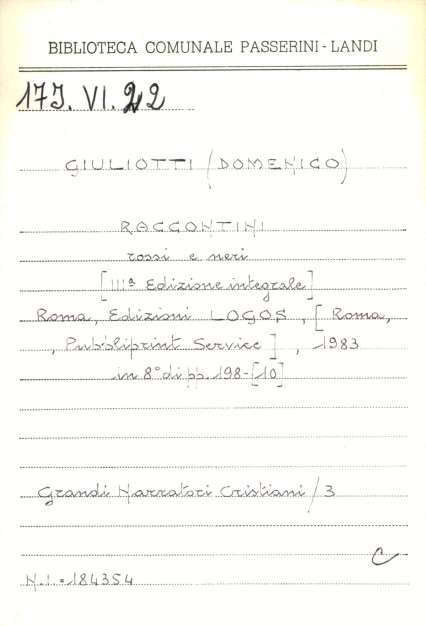 BIBLIOTECA COMUNALE PASSERINI - LANDI
173. VI. 22
GIULIOTTI (DOMENICO)
RACCONTINI
rossi e neri
[IIIª Edizione integrale]
Roma, Edizioni LOGOS, [Roma,
, Pubbliprint Service], 1983
in 8° di pp. 198-[10]
Grandi Narratori Cristiani / 3
C
N.I. = 184354